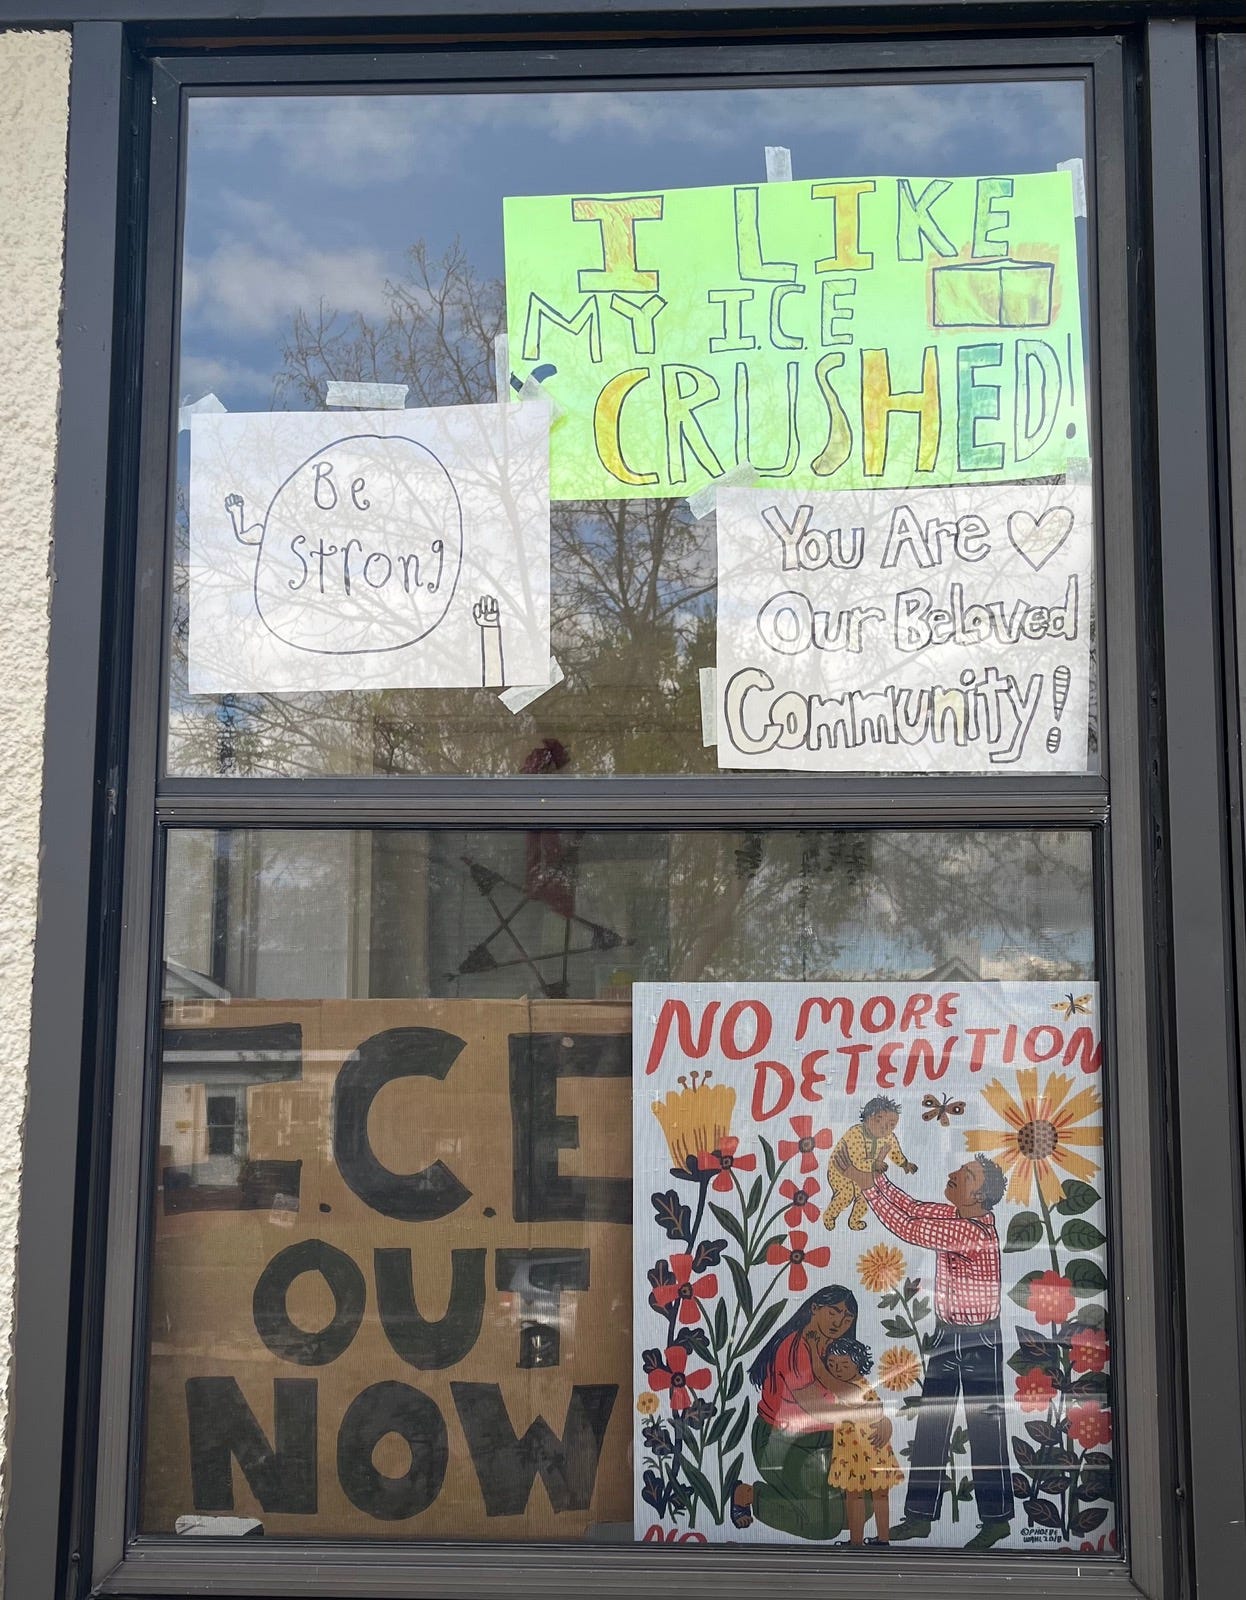 I LIKE
MY I.C.E
CRUSHED!
Be
Strong
You Are
Our Beloved
Community!
I.C.E
OUT
NOW
NO MORE
DETENTION
©PHOEBE
WAHL 2018
NO